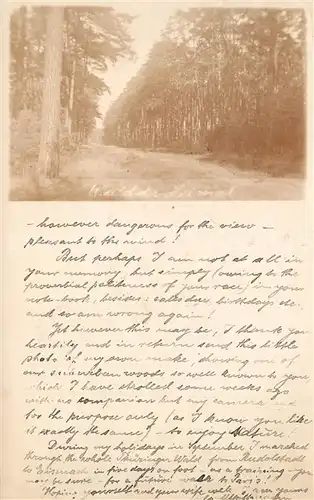 — however dangerous for the view —
pleasant to the mind!
But perhaps I am not at all in
your memory, but simply (owing to the
proverbial politeness of your race) in your
note-book, besides: sales due, birthdays etc.
and so am wrong again!
Yet however this may be, I thank you
heartily and in return send this little
photo of my own make, showing one of
our suburban woods so well known to you,
which I have strolled some weeks ago
with no companion but my camera and
for the purpose only (as I know you like
it exactly the same) — to enjoy Nature!
During my holidays in September I marched
through the whole Thüringer Wald from Rudolstadt
to Eisenach in five days on foot — as a training — you
may be sure — for a future to Paris!
Hoping yourself and your wife well, I am yours